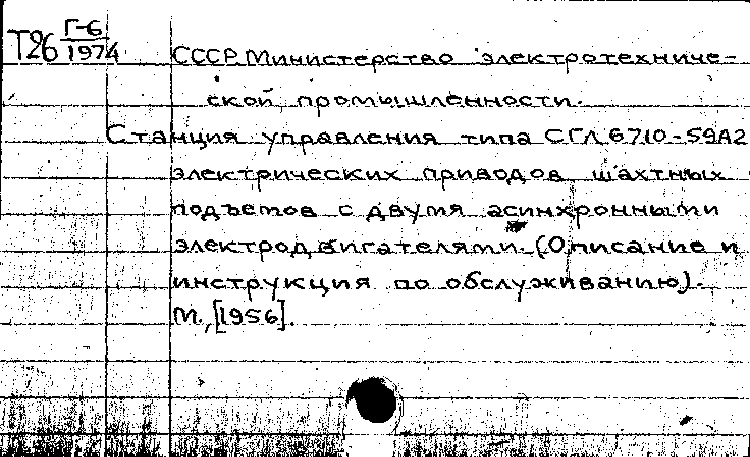 Т26 Г-6/1974
СССР. Министерство электротехниче-
ской промышленности.
Станция управления типа СГЛ 6710-59А2
электрических приводов шахтных
подъемов с двумя асинхронными
электродвигателями. (Описание и
инструкция по обслуживанию).
М., [1956].